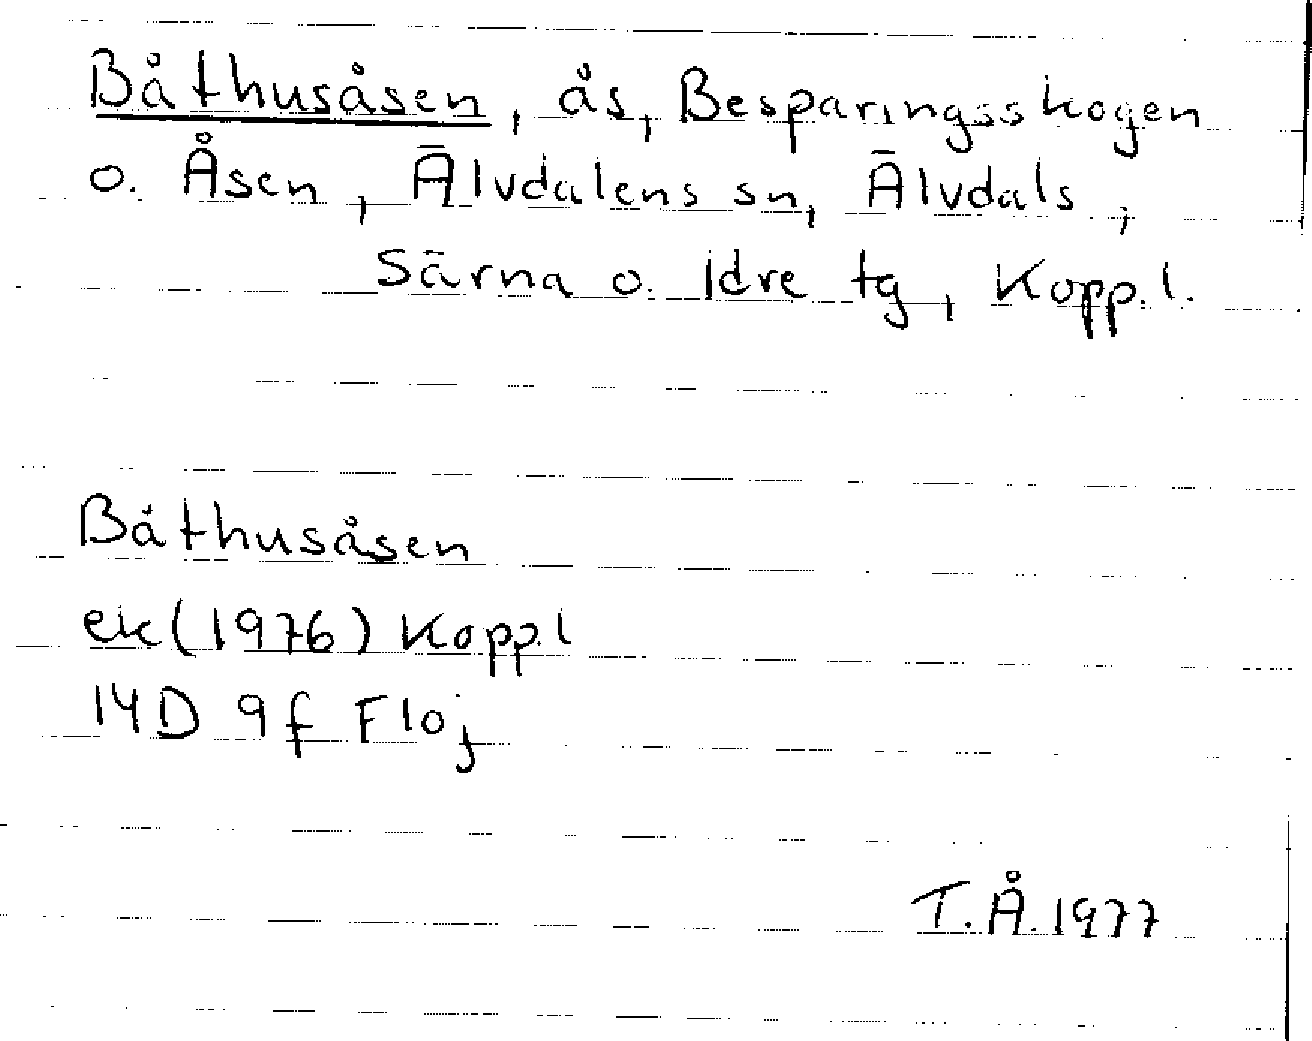 Båthusåsen, ås, Besparingsskogen
o. Åsen, Älvdalens sn, Älvdals,
Särna o. Idre tg, Kopp.l.
Båthusåsen
ek(1976) Kopp.l
14D 9f Floj
T.Å.1977